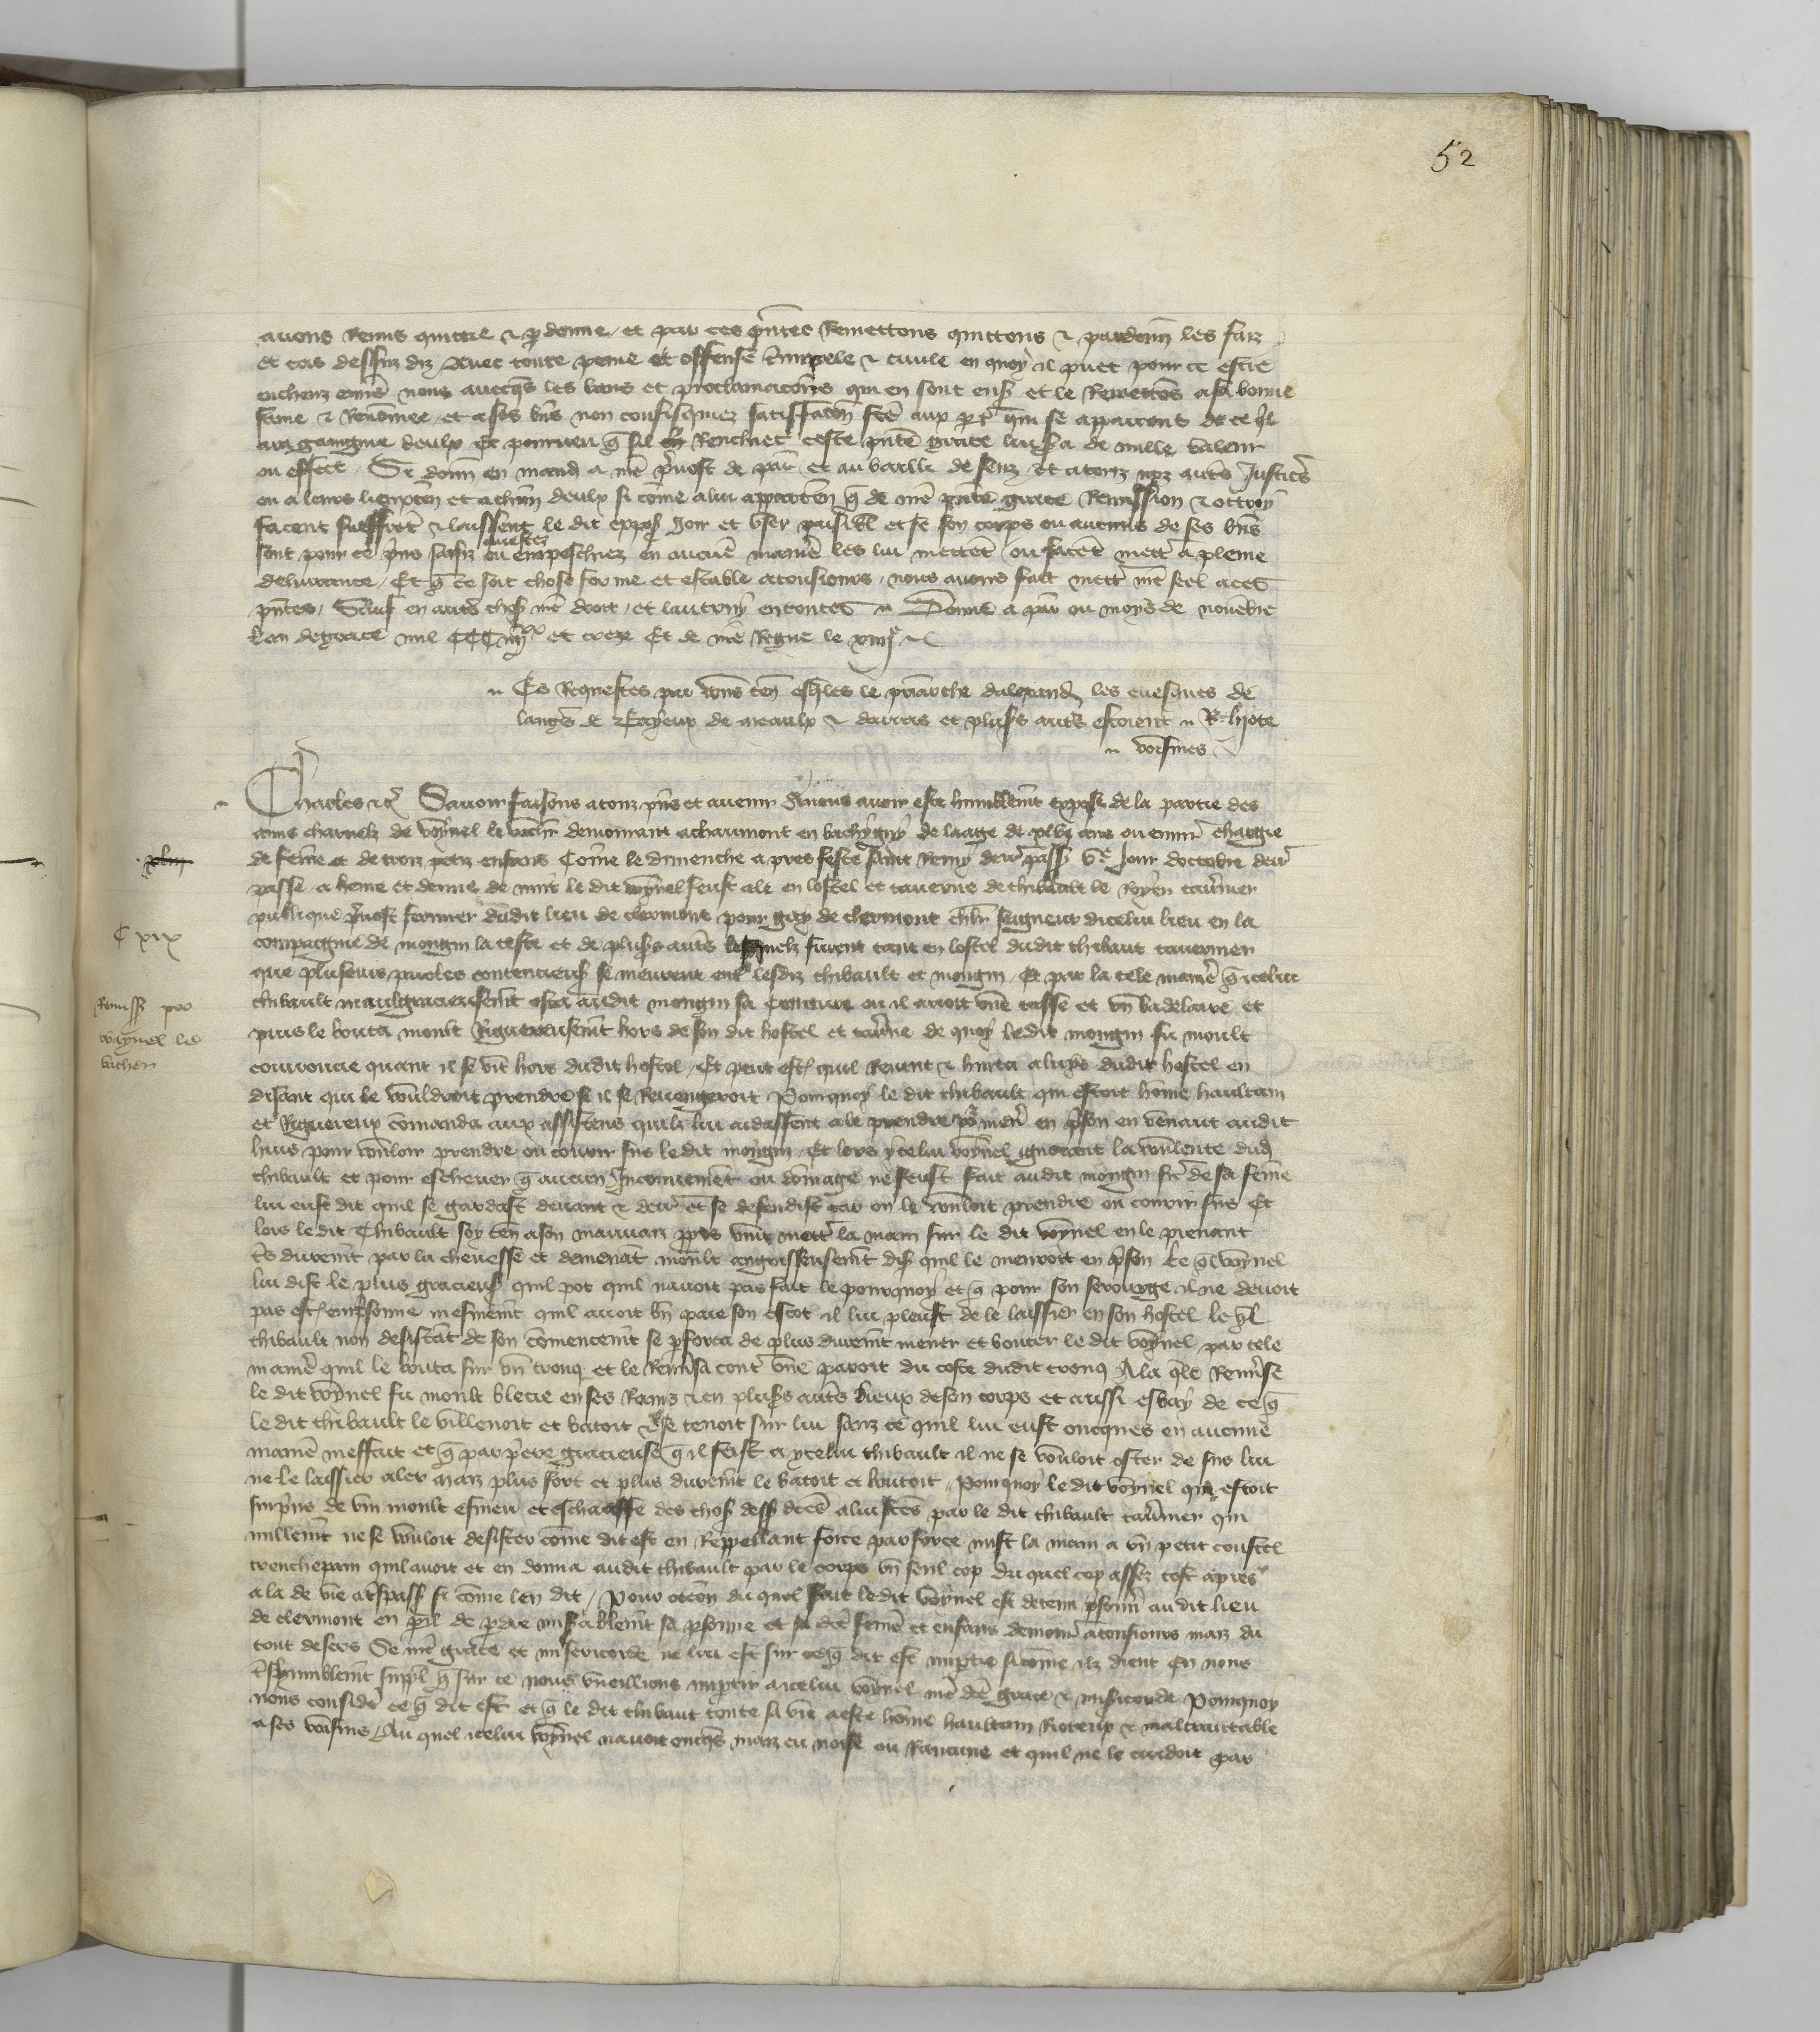 52
avons Remis quittie & pdonne et par ces pntes Remettons quittons & pardonn les faiz
et cas dessuz diz Avec toute peine et offense crimnele & civile en quoy il puet pour ce estre
encheuz envers nous avecqs les bans et proclamacions qui en sont ensuis et le Remettons a sa bonne
fame & Renommee et a ses bns non confisquez satisfaction fce aux pt qui se appairont de ce
deulx Et pourveu q sil Renchiet ceste pnte grace lui sa de nulle valeur
ou effect Si donn en mand a nre pvost de par et au bailli de senz et a touz noz auts Justics
ou a leurs lieuxten et a chun deulx si come a lui apparten q de nre pnte grace Remission & ottroy
facent sueffrent & laissent le dit expos Joir et user paisibl et se son corps ou aucuns de ses bns
sont pour ce pris saisiz arrestez ou empeschiez en aucune maniere les lui mettent ou facent mett a pleine
delivrance Et q ce soit chose ferme et estable a tousiours nous avons fait mett nre seel a ces
pntes Sauf en auts choses nre droit et lautruy en toutes Donne a par ou moys de novebre
Lan de grace mil CCC iiii xx et treze Et de nre Regne le xiiii e
Es Requestes par vous ten esqles le priarche dalexand les evesques de
langs de Bayeux de meaulx & darras et plusrs auts estoient R lyote
voisines
Charles &c Savoir faisons a touz pns et avenir A nous avoir este humblemt expose de la partie des
amis charnelz de voynel le vachier demourant a chaumont en bassigny de laage de xlv ans ou environ chargie
de feme et de trois petiz enfans Come le dimenche apres feste saint Remy derr pass v e Jour doctobre derr
passe a heure et demie de nuit le dit voynel feust ale en lostel et taverne de thibault le Royer tavnier
publique pvost fermier dudit lieu de clermont pour guy de clermont chlr seigneur dicelui lieu en la
compaignie de mongin la teste et de plusrs auts lesquelz furent tant en lostel dudit thibaut tavernier
que pluseurs paroles contencieus se meurent ent lesdiz thibault et mongin Et par la tele manie q icelui
thibault maulgracieusemt osta audit mongin sa ceinture ou il avoit une tasse et un badelaire et
puis le bouta moult Rigoreusemt hors de son dit hostel et tavne de quoy ledit mongin fu moult
courroucie quant il se vit hors dudit hostel Et peut est quil Revint & hurta a luys dudit hostel en
disant qui le vouldroit prendre se il se Revengeroit Pourquoy le dit thibault qui estoit home haultain
et Rigoreux comanda aux assistens quilz lui aidassent a le prendre pr mener en prison en venant audit
huis pour vouloir prendre ou courir sus ledit mongin Et lors ycelui voynel ignorant la voulente dud
thibault et pour eschever q aucun Inconvenient ou domage ne feust fait audit mongin fre de sa feme
lui eust dit quil se gardast devant & derr et se defendist car on le vouloit prendre ou courir sus Et
lors le dit Thibault soy ten a son mauvaiz ppos vint mett la main sur le dit voynel en le prenant
ts duremt par la chevesse et demenant moult angoisseusemt dis quil le menroit en prison Le ql voynel
lui dist le plus gracieus quil pot quil navoit pas fait le pourquoy et q pour son serourge il ne devoit
pas est empsonne mesmemt quil avoit bn paie son escot il lui pleust de le laissier en son hostel Le ql
thibault non desistant de son comencemt se pforca de plus duremt mener et bouter le dit voynel par tele
manie quil le bouta sur un tronq et le Renvsa cont une paroit du coste dudit tronq A la qle Renvse
le dit voynel fu moult blecie en ses Rains & en plusrs auts lieux de son corps et aussi esbay de ce q
le dit thibault le villenoit et batoit & se tenoit sur lui sanz ce quil lui eust oncques en aucune
maniere meffait et q par priere gracieuse q il feist a ycelui thibault il ne se vouloit oster de sus lui
ne le laissier aler maiz plus fort et plus duremt le batoit et boutoit Pourquoy le dit voynel qui estoit
surpns de vin moult esmeu et eschauffe des chos dess dctes a lui fctes par le dit thibault tavnier qui
nullemt ne se vouloit desister come dit est en Reppellant force par force mist la main a un petit coustel
trenchepain quil avoit et en donna audit thibault par le corps un seul cop du quel cop assez tost apres
ala de vie a tspass si come len dit Pour occon du quel fait le dit voynel est detenu psonn au dit lieu
de clermont en pil de pdre misablemt sa psonne et sa dce feme et enfans demour a tousiours maiz du
tout desers Se nre grace et misericorde ne lui est sur ce q dit est imptie si come ilz dient En nous
tshumblemt suppl q sur ce nous vueillions imptir a icelui voynel nre dce grace & misicorde Pourquoy
nous considr ce q dit est et q le dit thibaut toute sa vie a este home haultain Rioteux & maltraittable
a ses voisins Au quel icelui voynel navoit oncqs maiz eu noise ou Rancune et quil ne le cuidoit par
C xix
Remiss por
voynel le
vachier